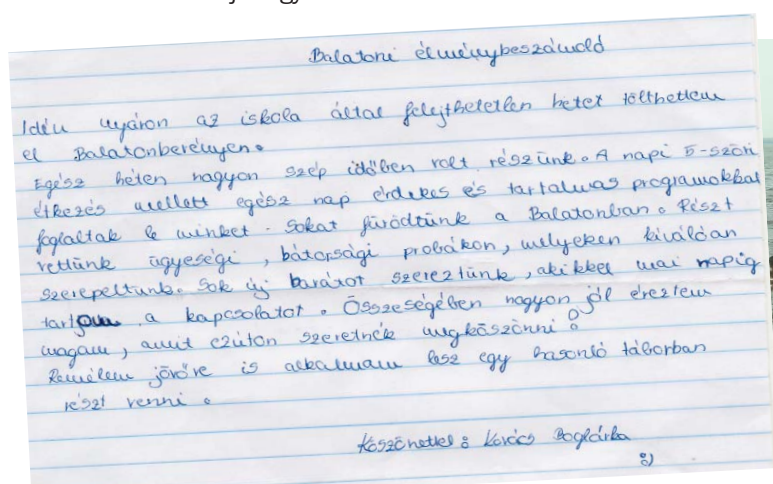 Balatoni élménybeszámoló
Idén nyáron az iskola által felejthetetlen hetet tölthettem
el Balatonberényen.
Egész héten nagyon szép időben volt részünk. A napi 5-szöri
étkezés mellett egész nap érdekes és tartalmas programokkal
foglaltak le minket. Sokat fürödtünk a Balatonban. Részt
vettünk ügyeségi, bátorsági probákon, melyeken kiválóan
szerepeltünk. Sok új barátot szereztünk, akikkel mai napig
tartom a kapcsolatot. Összeségében nagyon jól éreztem
magam, amit ezúton szeretnék megköszönni!
Remélem jövőre is alkalmam lesz egy hasonló táborban
részt venni.
Köszönettel: Kovács Boglárka
:)